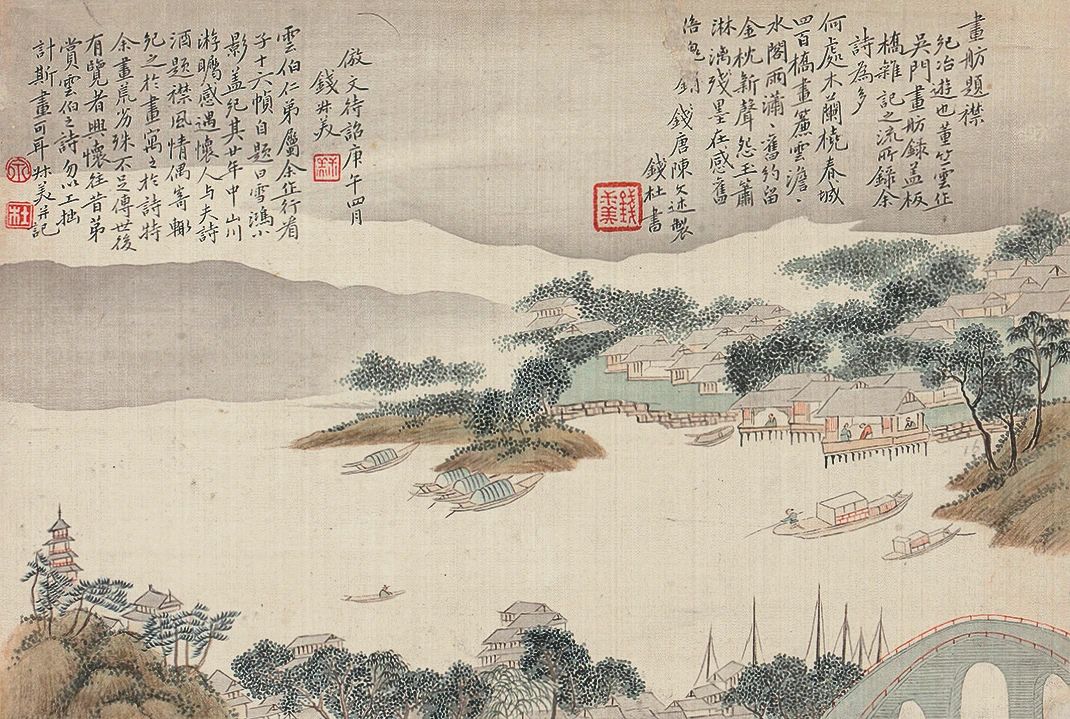 畫舫題襟
紀冶遊也董竺雲作
吳門畫舫錄蓋板
橋雜記之流所錄余
詩為多
何處木蘭橈春城
四百橋畫簾雲澹澹
水閣雨瀟瀟舊約留
金枕新聲怨玉簫
淋漓殘墨在感舊
錢唐陳文述製
錢杜書
錢叔美
倣文待詔庚午四月
錢叔美
叔美
雲伯仁弟屬余作行看
子十六幀自題曰雪鴻小
影蓋紀其廿年中山川
游矚感遇懷人与夫詩
酒題襟風情偶寄輙
紀之於畫寓之於詩特
余畫荒劣殊不足傳世後
有覽者興懷往昔弟
賞雲伯之詩勿以工拙
計斯畫可耳叔美并記
杜